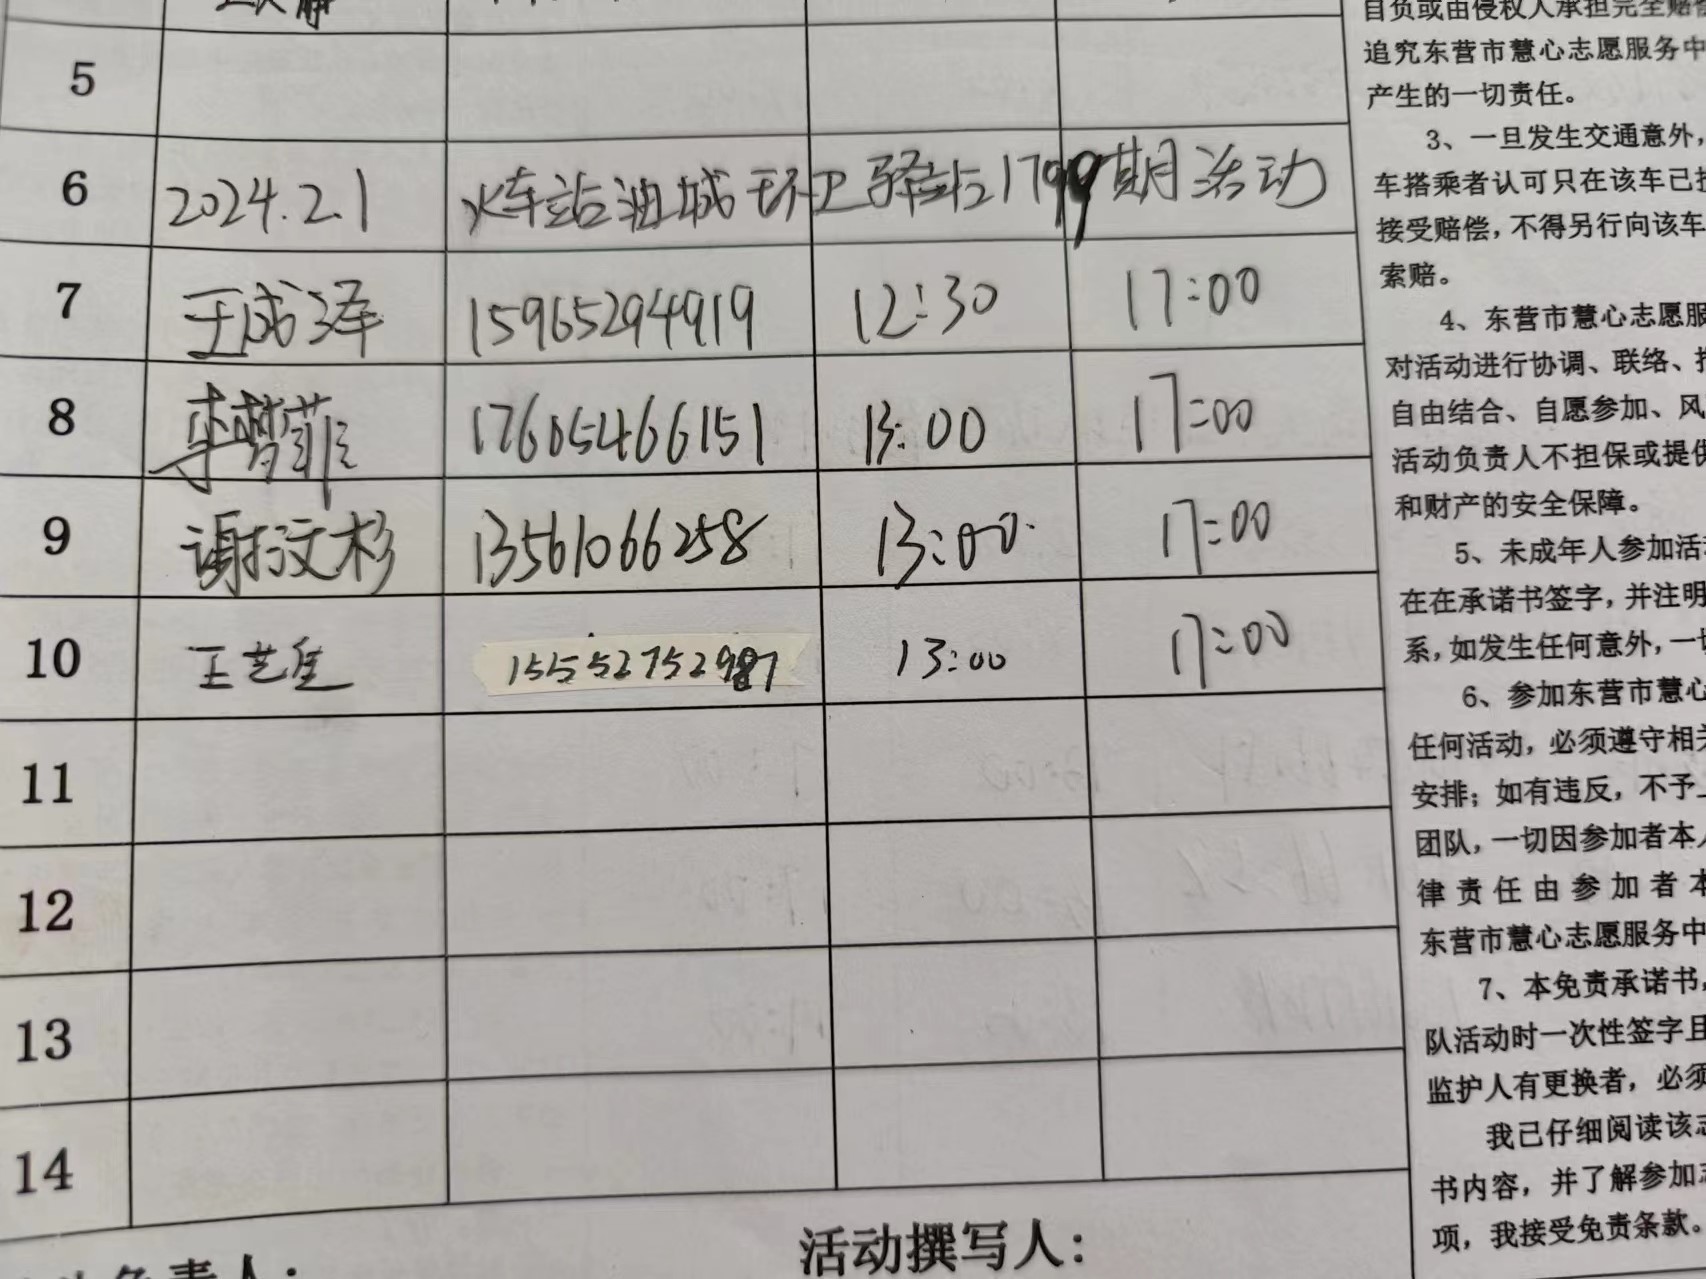 自负或由侵权人承担完全赔偿
追究东营市慧心志愿服务中
产生的一切责任。
3、一旦发生交通意外，
车搭乘者认可只在该车已投
接受赔偿，不得另行向该车
索赔。
4、东营市慧心志愿服
对活动进行协调、联络、
自由结合、自愿参加、风
活动负责人不担保或提供
和财产的安全保障。
5、未成年人参加活动
在在承诺书签字，并注明
系，如发生任何意外，一切
6、参加东营市慧心
任何活动，必须遵守相关
安排；如有违反，不予
团队，一切因参加者本人
律责任由参加者本
东营市慧心志愿服务中
7、本免责承诺书，
队活动时一次性签字且
监护人有更换者，必须
我已仔细阅读该志
书内容，并了解参加志
项，我接受免责条款。
5
6 2024.2.1 火车站油城环卫驿站1799期活动
7 王成泽 15965294919 12:30 17:00
8 李梦菲 17605466151 13:00 17:00
9 谢汶杉 13561066258 13:00 17:00
10 王艺 15552752987 13:00 17:00
11
12
13
14
负责人：
活动撰写人：